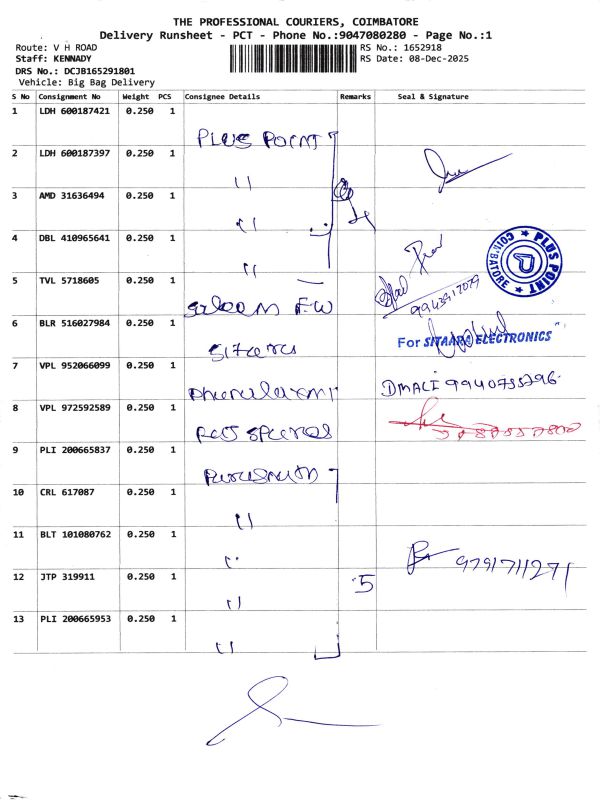 THE PROFESSIONAL COURIERS, COIMBATORE
Delivery Runsheet - PCT - Phone No.:9047080280 - Page No.:1
Route: V H ROAD
RS No.: 1652918
Staff: KENNADY
RS Date: 08-Dec-2025
DRS No.: DCJB165291801
Vehicle: Big Bag Delivery
S No Consignment No Weight PCS Consignee Details Remarks Seal & Signature
1 LDH 600187421 0.250 1
PLUS POINT
2 LDH 600187397 0.250 1
〃
3 AMD 31636494 0.250 1
〃
4 DBL 410965641 0.250 1
〃
PLUS POINT
COIMBATORE
5 TVL 5718605 0.250 1
Saleem F.W
6 BLR 516027984 0.250 1
For SITAARA ELECTRONICS
Sitara
7 VPL 952066099 0.250 1
DMALI 9940735296
8 VPL 972592589 0.250 1
9 PLI 200665837 0.250 1
10 CRL 617087 0.250 1
〃
11 BLT 101080762 0.250 1
〃
9791711271
12 JTP 319911 0.250 1
5
〃
13 PLI 200665953 0.250 1
〃